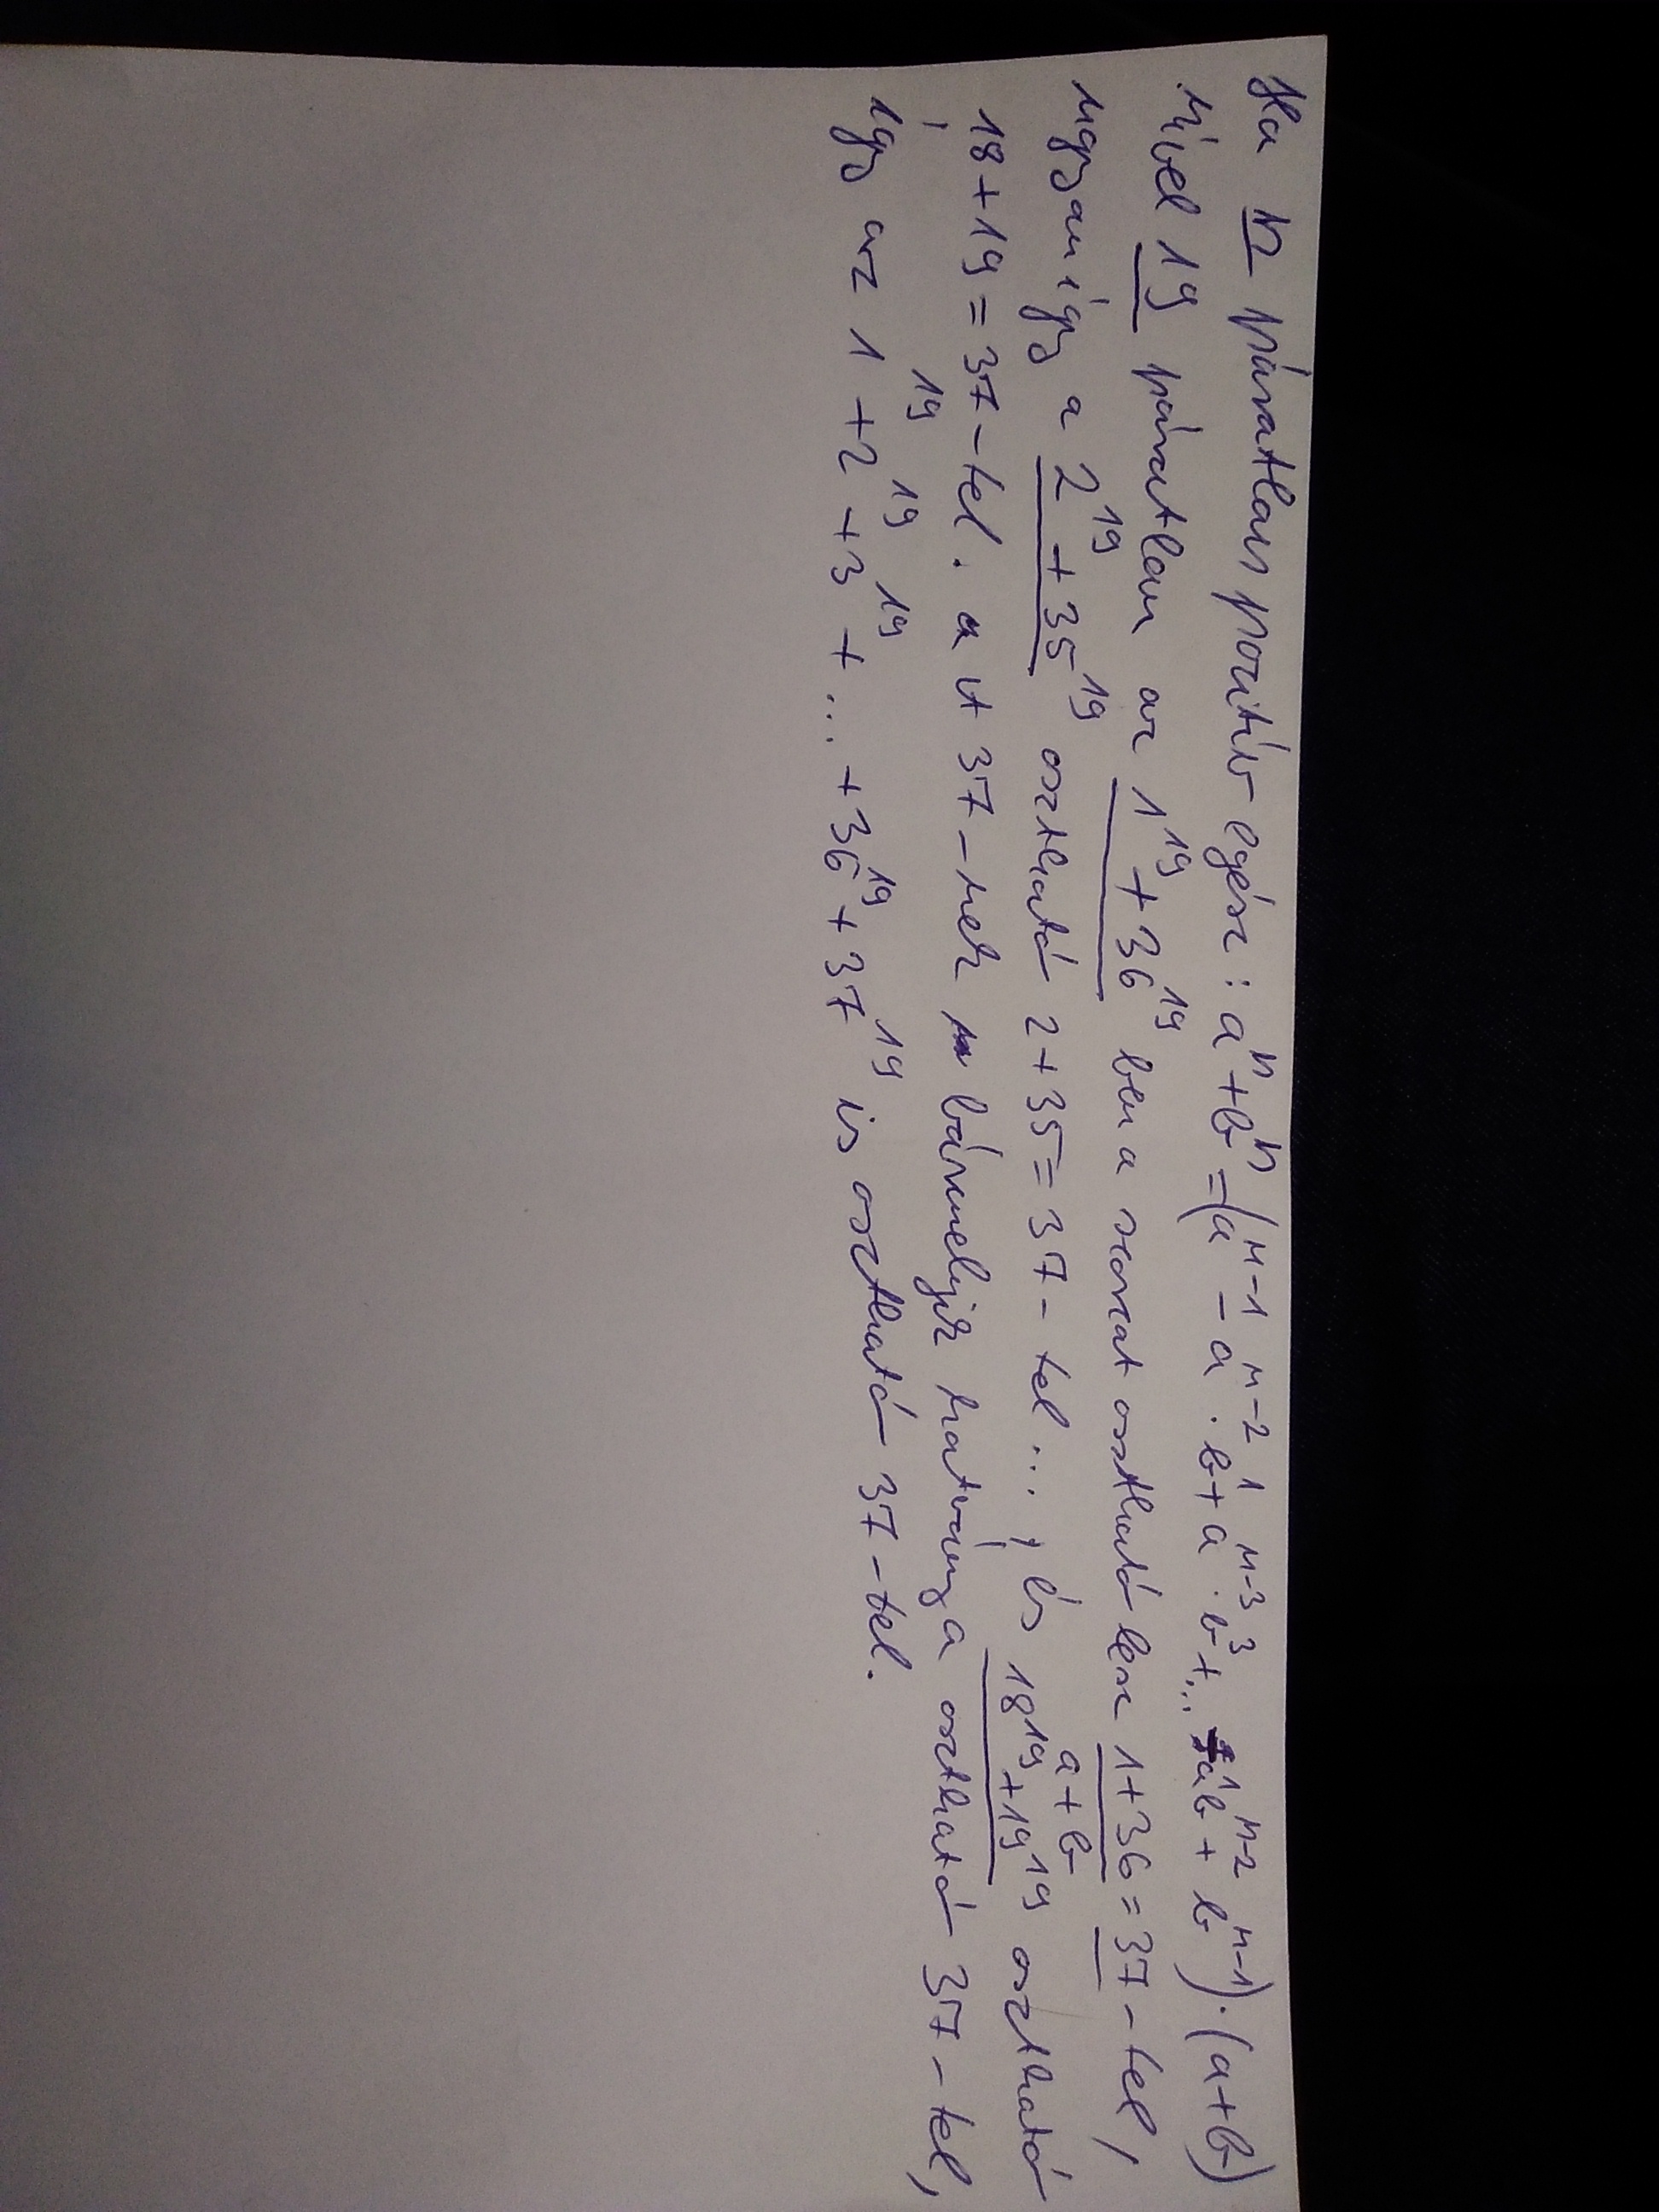 Ha n páratlan pozitív egész: aⁿ+bⁿ=(aⁿ⁻¹-aⁿ⁻²·b¹+aⁿ⁻³·b³+... a¹bⁿ⁻²+bⁿ⁻¹)·(a+b)
Mivel 19 páratlan az 1¹⁹+36¹⁹ ben a szorzat osztható lesz 1+36=37-tel,
a+b
ugyanígy a 2¹⁹+35¹⁹ osztható 2+35=37-tel..., és 18¹⁹+19¹⁹ osztható
18+19=37-tel. a 37-nek bármelyik hatványa osztható 37-tel,
így az 1¹⁹+2¹⁹+3¹⁹+...+36¹⁹+37¹⁹ is osztható 37-tel.